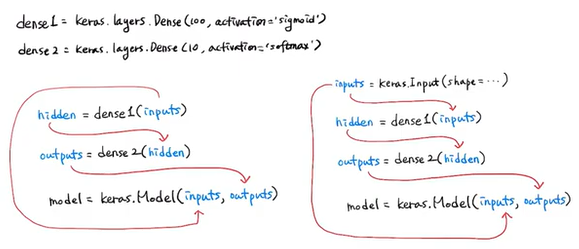 dense1 = keras.layers.Dense(100, activation='sigmoid')
dense2 = keras.layers.Dense(10, activation='softmax')
hidden = dense1(inputs)
outputs = dense2(hidden)
model = keras.Model(inputs, outputs)
inputs = keras.Input(shape=...)
hidden = dense1(inputs)
outputs = dense2(hidden)
model = keras.Model(inputs, outputs)